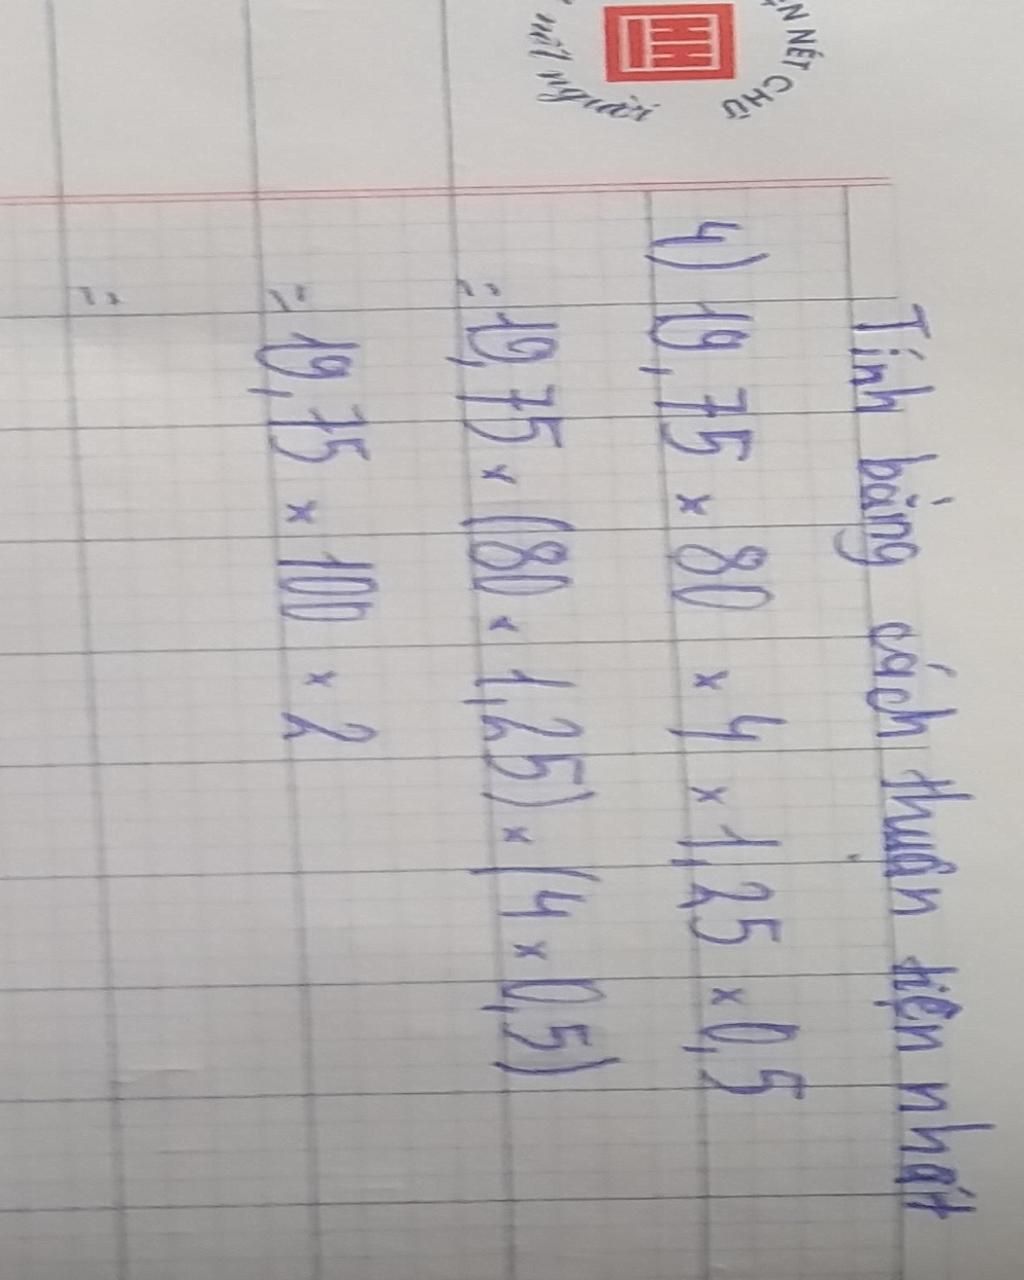 ỆN NẾT CHỮ
nết người
Tính bằng cách thuận tiện nhất
4) 19,75 x 80 x 4 x 1,25 x 0,5
= 19,75 x (80 x 1,25) x (4 x 0,5)
= 19,75 x 100 x 2
=